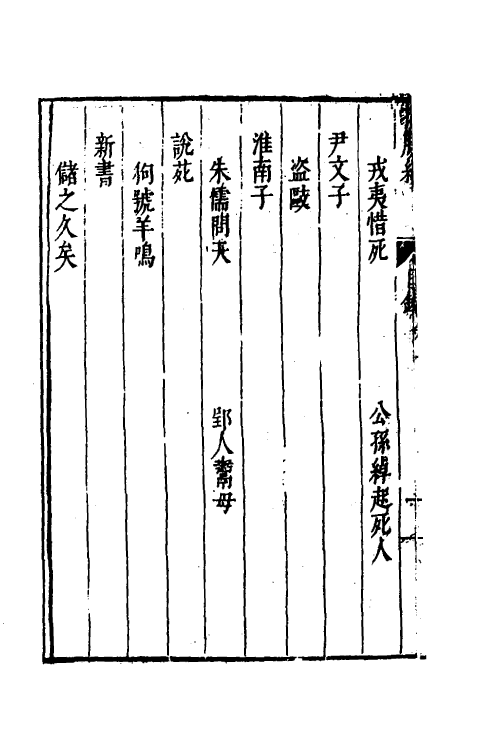 戎夷惜死　公孫綽起死人
尹文子
盗毆
淮南子
朱儒問天　郢人鬻母
說苑
狗號羊鳴
新書
儲之久矣